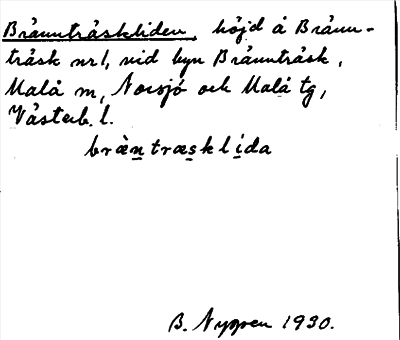 Bränntråskliden, höjd å Bränn-
träsk nr 1, vid byn Bränntråsk,
Malå m, Norsjö och Malå tg,
Västerb. l.
bràntræsklida
B. Nygren 1930.